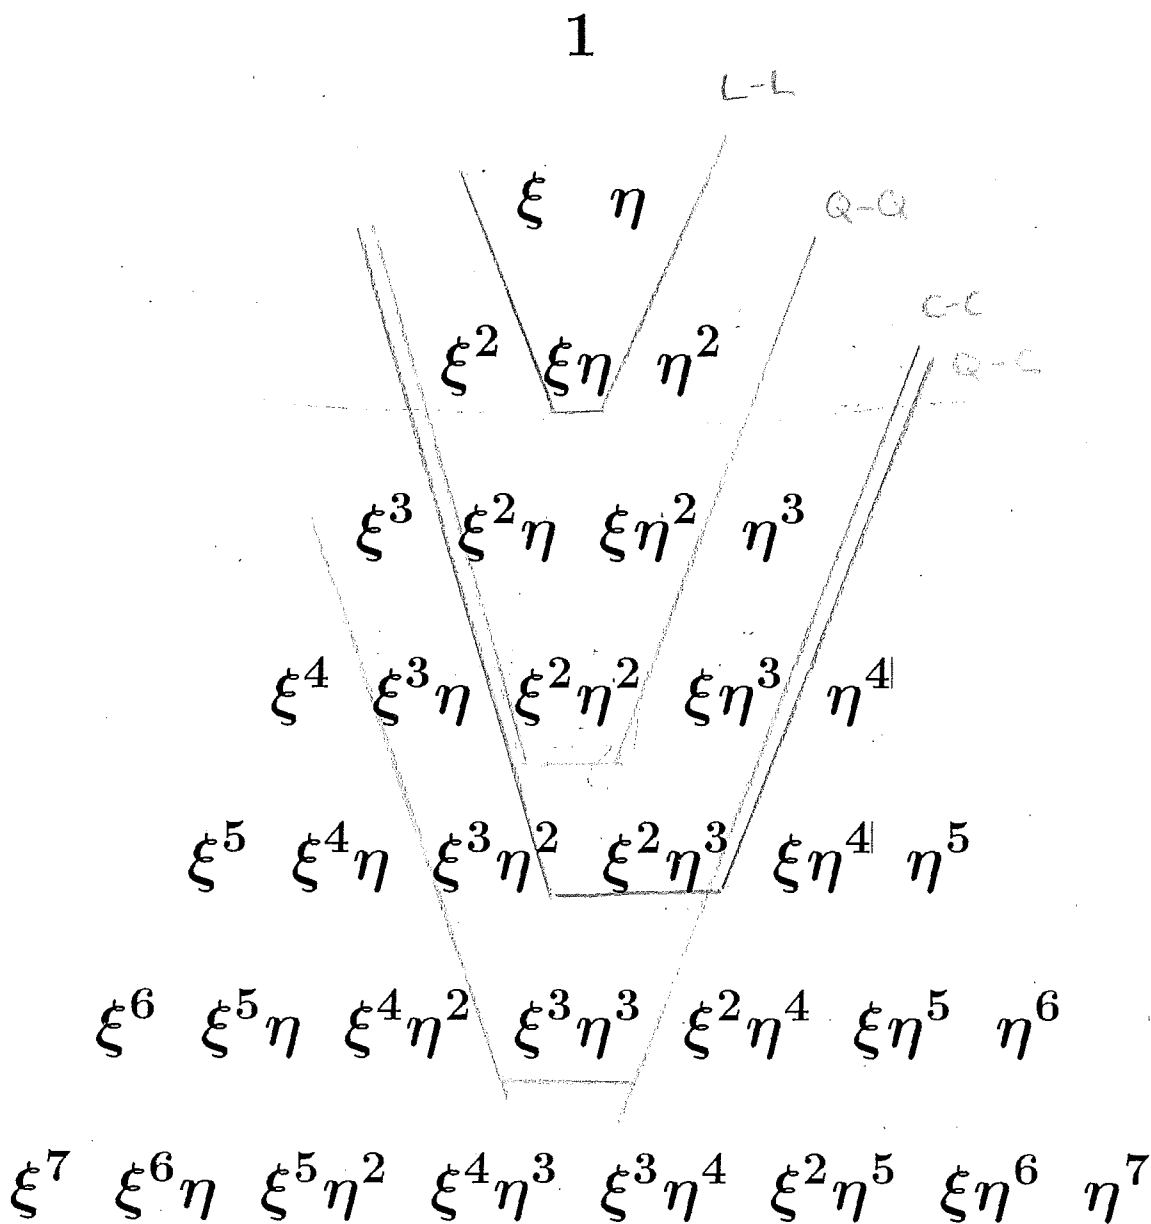 1
L-L
ξ η
Q-Q
C-C
Q-C
ξ² ξη η²
ξ³ ξ²η ξη² η³
ξ⁴ ξ³η ξ²η² ξη³ η⁴
ξ⁵ ξ⁴η ξ³η² ξ²η³ ξη⁴ η⁵
ξ⁶ ξ⁵η ξ⁴η² ξ³η³ ξ²η⁴ ξη⁵ η⁶
ξ⁷ ξ⁶η ξ⁵η² ξ⁴η³ ξ³η⁴ ξ²η⁵ ξη⁶ η⁷